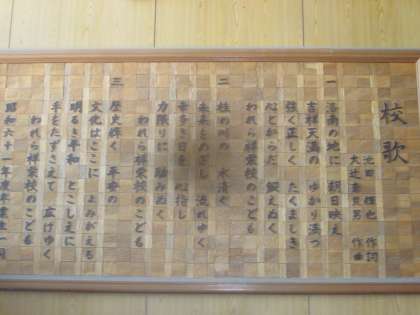 校歌
池田 輝也 作詞
大辻 喜員男 作曲
一 洛南の地に 朝日映え
吉祥天満の ゆかり満つ
強く正しく たくましき
心とからだ 鍛えぬく
われら祥栄校のこども
二 桂の川の 水清く
未来をめざし 流れゆく
幸多き日を 心指し
力限りに 励みぬく
われら祥栄校のこども
三 歴史輝く 平安の
文化はここに よみがえる
明るき平和 とこしえに
手をたずさえて 広げゆく
われら祥栄校のこども
昭和六十一年度卒業生一同